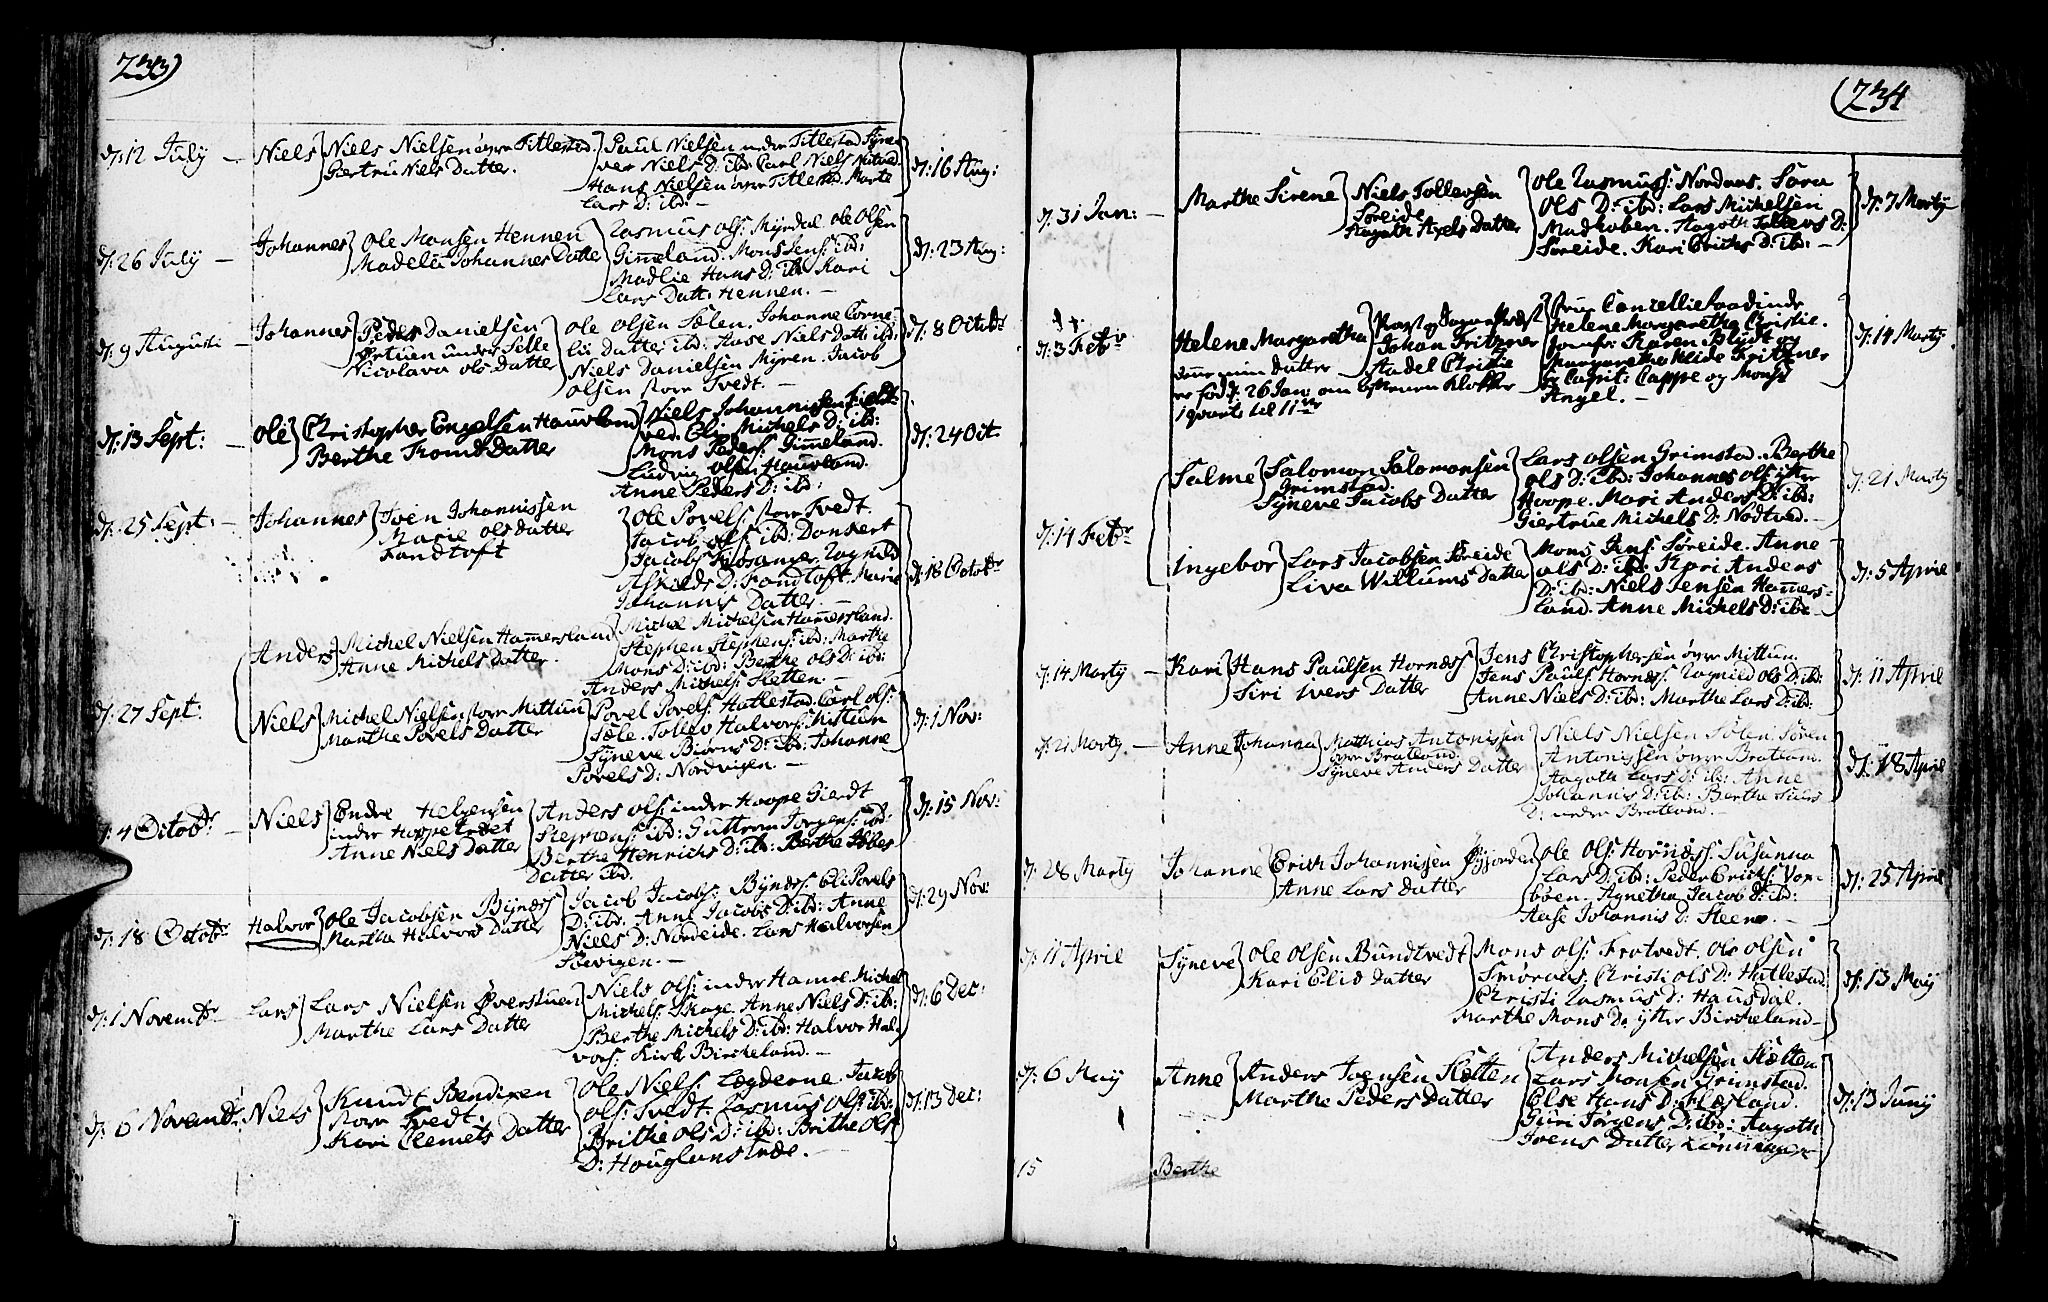 233)
d: 12 July — Niels
Niels Nielsen øvre Titlestad
Giertru Niels Datter.
Paul Nielsen nedre Titlestad Syne-
ver Niels D: ibd: Carl Niels
Hans Nielsen øvre Titlestad. Marte
Lars D: ibd: —
d: 16 Aug:
d: 26 July — Johannes
Ole Monsen Hennen
Madele Johannes Datter
Rasmus ols: Myrdal. ole olsen
Gimeland. Mons Jens: ibd:
Madlie Hans D: ibd: Kari
Lars Datt: Hennen. —
d: 23 Aug:
d: 9 Augusti — Johannes
Peder Danielsen
under Selle
Nicolava ols Datter
Ole olsen Sælen. Johanne Corne-
lii Datter ibd: Aase Niels Datt: ibd:
Niels Danielsen Myren. Jacob
olsen store Tvedt. —
d: 8 Octobr
d: 13 Sept: — Ole
Christopher Engelsen Hauvland
Berthe Tronds Datter
Niels Johannissen Fieldt-
ved. Eli Michels D: ibd:
Mons Peders: Gimeland.
Ludvig olsen Hauvland.
Anne Peders D: ibd:
d: 24 Oct.
d: 25 Sept: — Johannes
Iven Johannissen
Marie ols Datter
Fandtoft
Ole Povels: store Tvedt.
Jacob ols: ibd: Donkert
Jacobs: Fiøsanger. Ragnild
Askilds D: Fandtoft. Marie
Johannis Datter. —
d: 18 Octobr
d: 27 Sept:
Anders
Michel Nielsen Hamersland
Anne Michels Datter.
Michel Michelsen Hamersland.
Stephen Stephens: ibd: Marthe
Mons D: ibd: Berthe ols D: ibd:
Anders Michels: Sletten —
Niels
Michel Nielsen store Mittun
Marthe Povels Datter
Povel Povels: Hatlestad. Carl ols:
Sæle. Tollev Halvors: Mittun
Syneve Biørns D: ibd: Johanne
Povels D: Nordvigen. —
d: 1 Nov:
d: 4 Octobr — Niels
Endre Helgesen
indre Hoppe
Anne Niels Datter
Anders ols: indre Hoope Gierdt
Stephens: ibd: Guttorm Jørgens: ibd:
Berthe Henrichs D: ibd: Berthe
Datter ibd.
d: 15 Nov:
d: 18 Octobr Halvor
Ole Jacobsen Bynæss
Martha Halvors Datter
Jacob Jacobs: Bynæss. Eli Povels
D: ibd: Anne Jacobs D: ibd: Anne
Niels D: Nordeide. Lars Halvorsen
Søevigen. —
d: 29 Nov:
d: 1 Novembr — Lars
Lars Nielsen Øverstuen
Marthe Lars Datter
Niels ols: indre Hamre. Michel
Michels: Skage. Anne Niels D: ibd:
Berthe Michels D: ibd: Halvor Hal-
vors: Kirk Bircheland. —
d: 6 Dec:
d: 6 Novembr: Niels
Knud Bendixen
store Tvedt.
Kari Clemets Datter
Ole Niels: Lægderne. Jacob
ols: Tvedt. Rasmus ols: ibd:
Brithe ols D: ibd: Brithe ols
D: Houglumstræde. —
d: 13 Dec:
(234
d: 31 Jan: — Marthe Sirene
Niels Tollevsen
Søreide
Aagoth Axels Datter
Ole Rasmuss: Nordaas. Sara
Ols D: ibd: Lars Michelsen
Madhoben. Aagoth Tollevs D:
Søreide. Kari Erichs D: ibd: —
d: 7 Marty
d: 3 Febr
Helene Margaretha
denne min datter
er fød d: 26 Jan. om aftenen klokker
1 qvart til 11ve
Provst og Sogne Præst
Johan Fritzner
Aadel Christie
Frue Cancellieraadinde
Helene Margaretha Christie.
Jomfr: Karen Blydt og
Margaretha Fritzner
Capit: Cappe og Mons:
Angel. —
d: 14 Marty
d: 14 Febr
Salme
Salomon Salomonsen
Grimstad.
Syneve Jacobs Datter
Lars olsen Grimstad. Berthe
ols D: ibd: Johannes ols: ytter
Hoope. Mari Anders D: ibd:
Giertrue Michels D: Nødtved. —
d: 21 Marty
Ingebor
Lars Jacobsen Søreide
Liva Willums Datter
Mons Jens: Søreide. Anne
ols D: ibd: Kari Anders
D: ibd: Niels Jensen Hamers-
land. Anne Michels D: ibd —
d: 5 April
d: 14 Marty — Kari
Hans Paulsen Hornæss
Siri Ivers Datter
Jens Christophersen øvre Mittun
Jens Pauls: Hornæss. Ragnild ols D: ibd:
Anne Niels D: ibd: Marthe Lars D: ibd:
d: 11 April
d: 21 Marty. — Anne Johanna
Mathias Antonissen
øvre Bratland.
Syneve Anders Datter
Niels Nielsen Sølen. Søren
Antonissen øvre Bratland.
Aagoth Lars D: ibd: Anne
Johannis D: ibd: Berthe
D: nedre Bratland. —
d: 18 April
d: 28 Marty Johanne
Erich Johannissen
Anne Lars Datter
Ole Ols: Hornæss. Susanna
Lars D: ibd: Peder Erichs:
bøen. Agnetha Jacobs D: ibd:
Aase Johannis D: Steene. —
d: 25 April
d: 11 April Syneve
Ole Olsen Bundtvedt
Kari Elis Datter
Mons ols: Frotvedt. Ole Olsen
Smøraas. Christi ols D: Hatlestad.
Christi Rasmus D: Hausdal.
Marthe Mons D: ytter Bircheland —
d: 13 Maij
d: 6 Maij Anne
Anders Ivensen Sletten
Marthe Peders Datter
Anders Michelsen Sletten
Lars Monsen Grimstad.
Else Hans D: Flæsland.
Guri Jørgens D: ibd: Aagoth
Ivens Datter
d: 13 Junij
15 Berthe